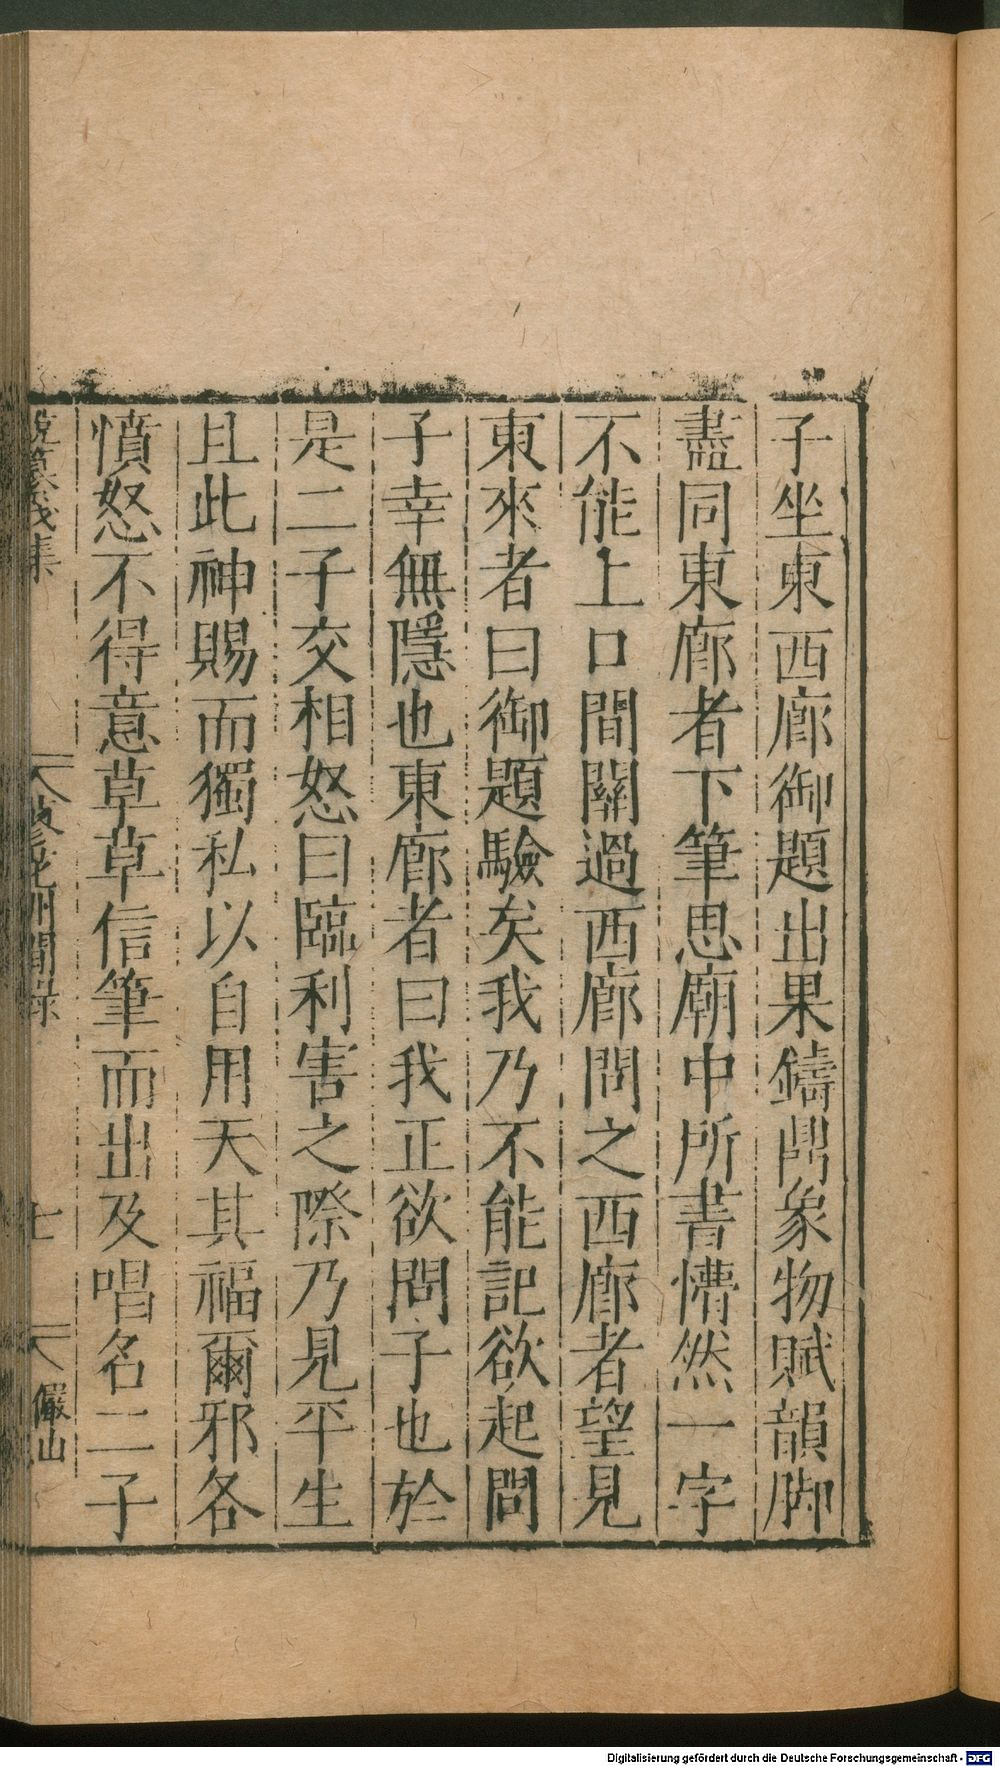 子坐東西廊御題出果鑄鼎象物賦韻脚
盡同東廊者下筆思廟中所書懵然一字
不能上口間關過西廊問之西廊者望見
東來者曰御題驗矣我乃不能記欲起問
子幸無隱也東廊者曰我正欲問子也於
是二子交相怒曰臨利害之際乃見平生
且此神賜而獨私以自用天其福爾邪各
憤怒不得意草草信筆而出及唱名二子
說纂戊集
投轄錄
七
儼山
Digitalisierung gefördert durch die Deutsche Forschungsgemeinschaft - DFG